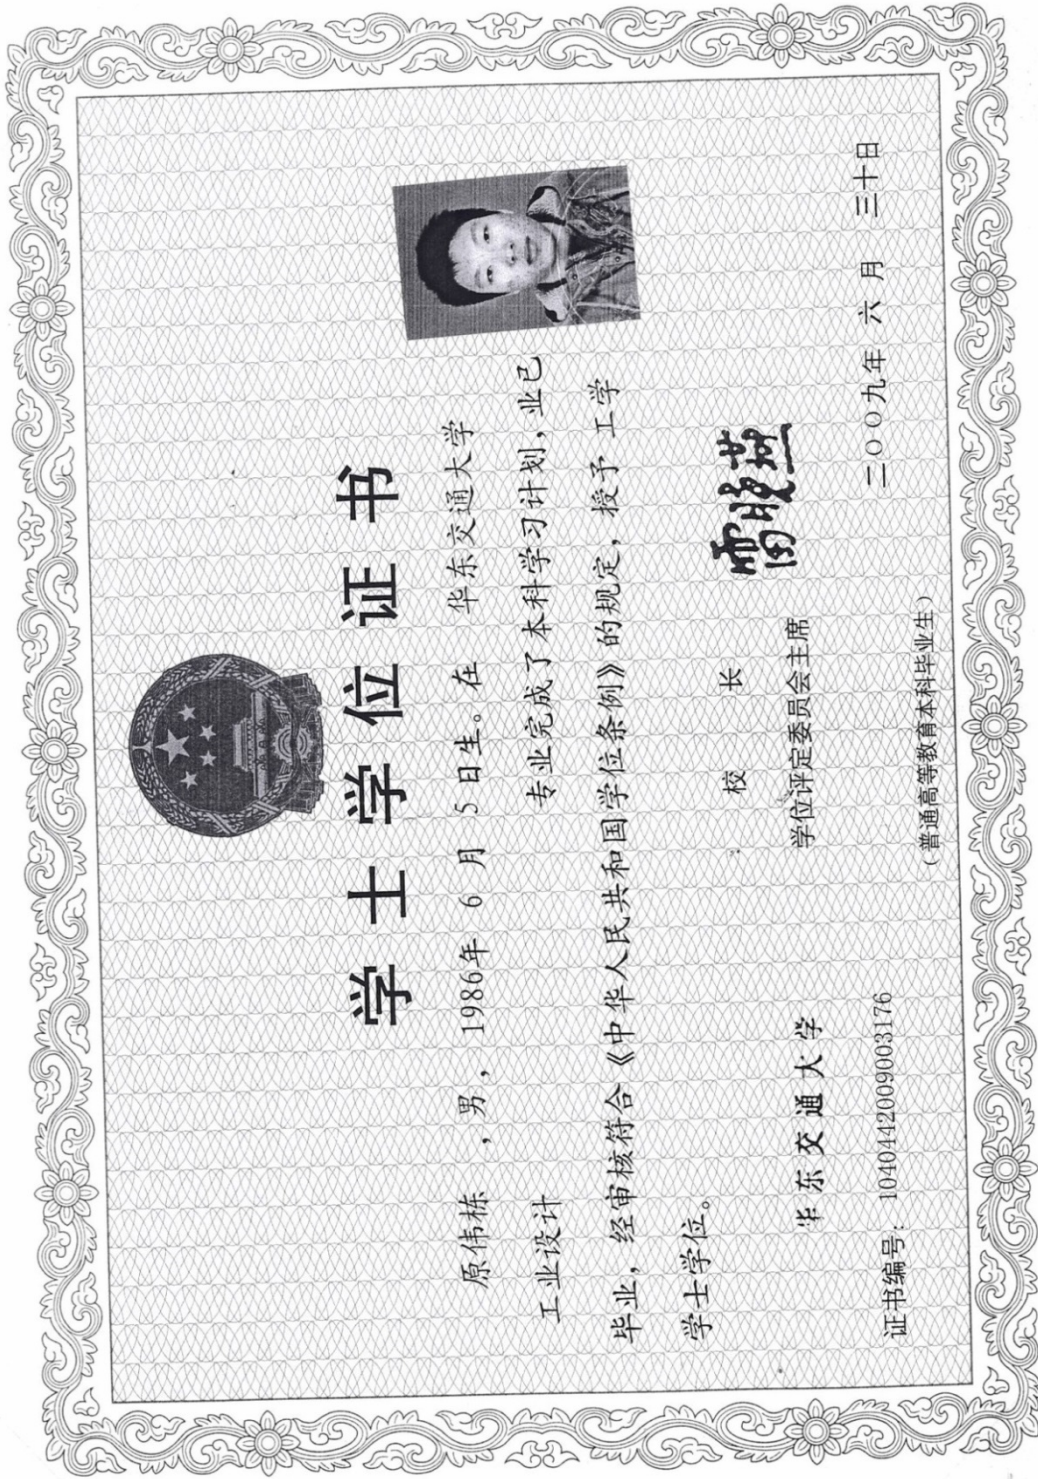 学士学位证书
原伟栋 ，男， 1986年 6 月 5 日生。在 华东交通大学
工业设计 专业完成了本科学习计划，业已
毕业，经审核符合《中华人民共和国学位条例》的规定，授予 工学
学士学位。
校 长 雷晓燕
华东交通大学 学位评定委员会主席
证书编号：1040442009003176 二〇〇九年 六 月 三十日
（普通高等教育本科毕业生）